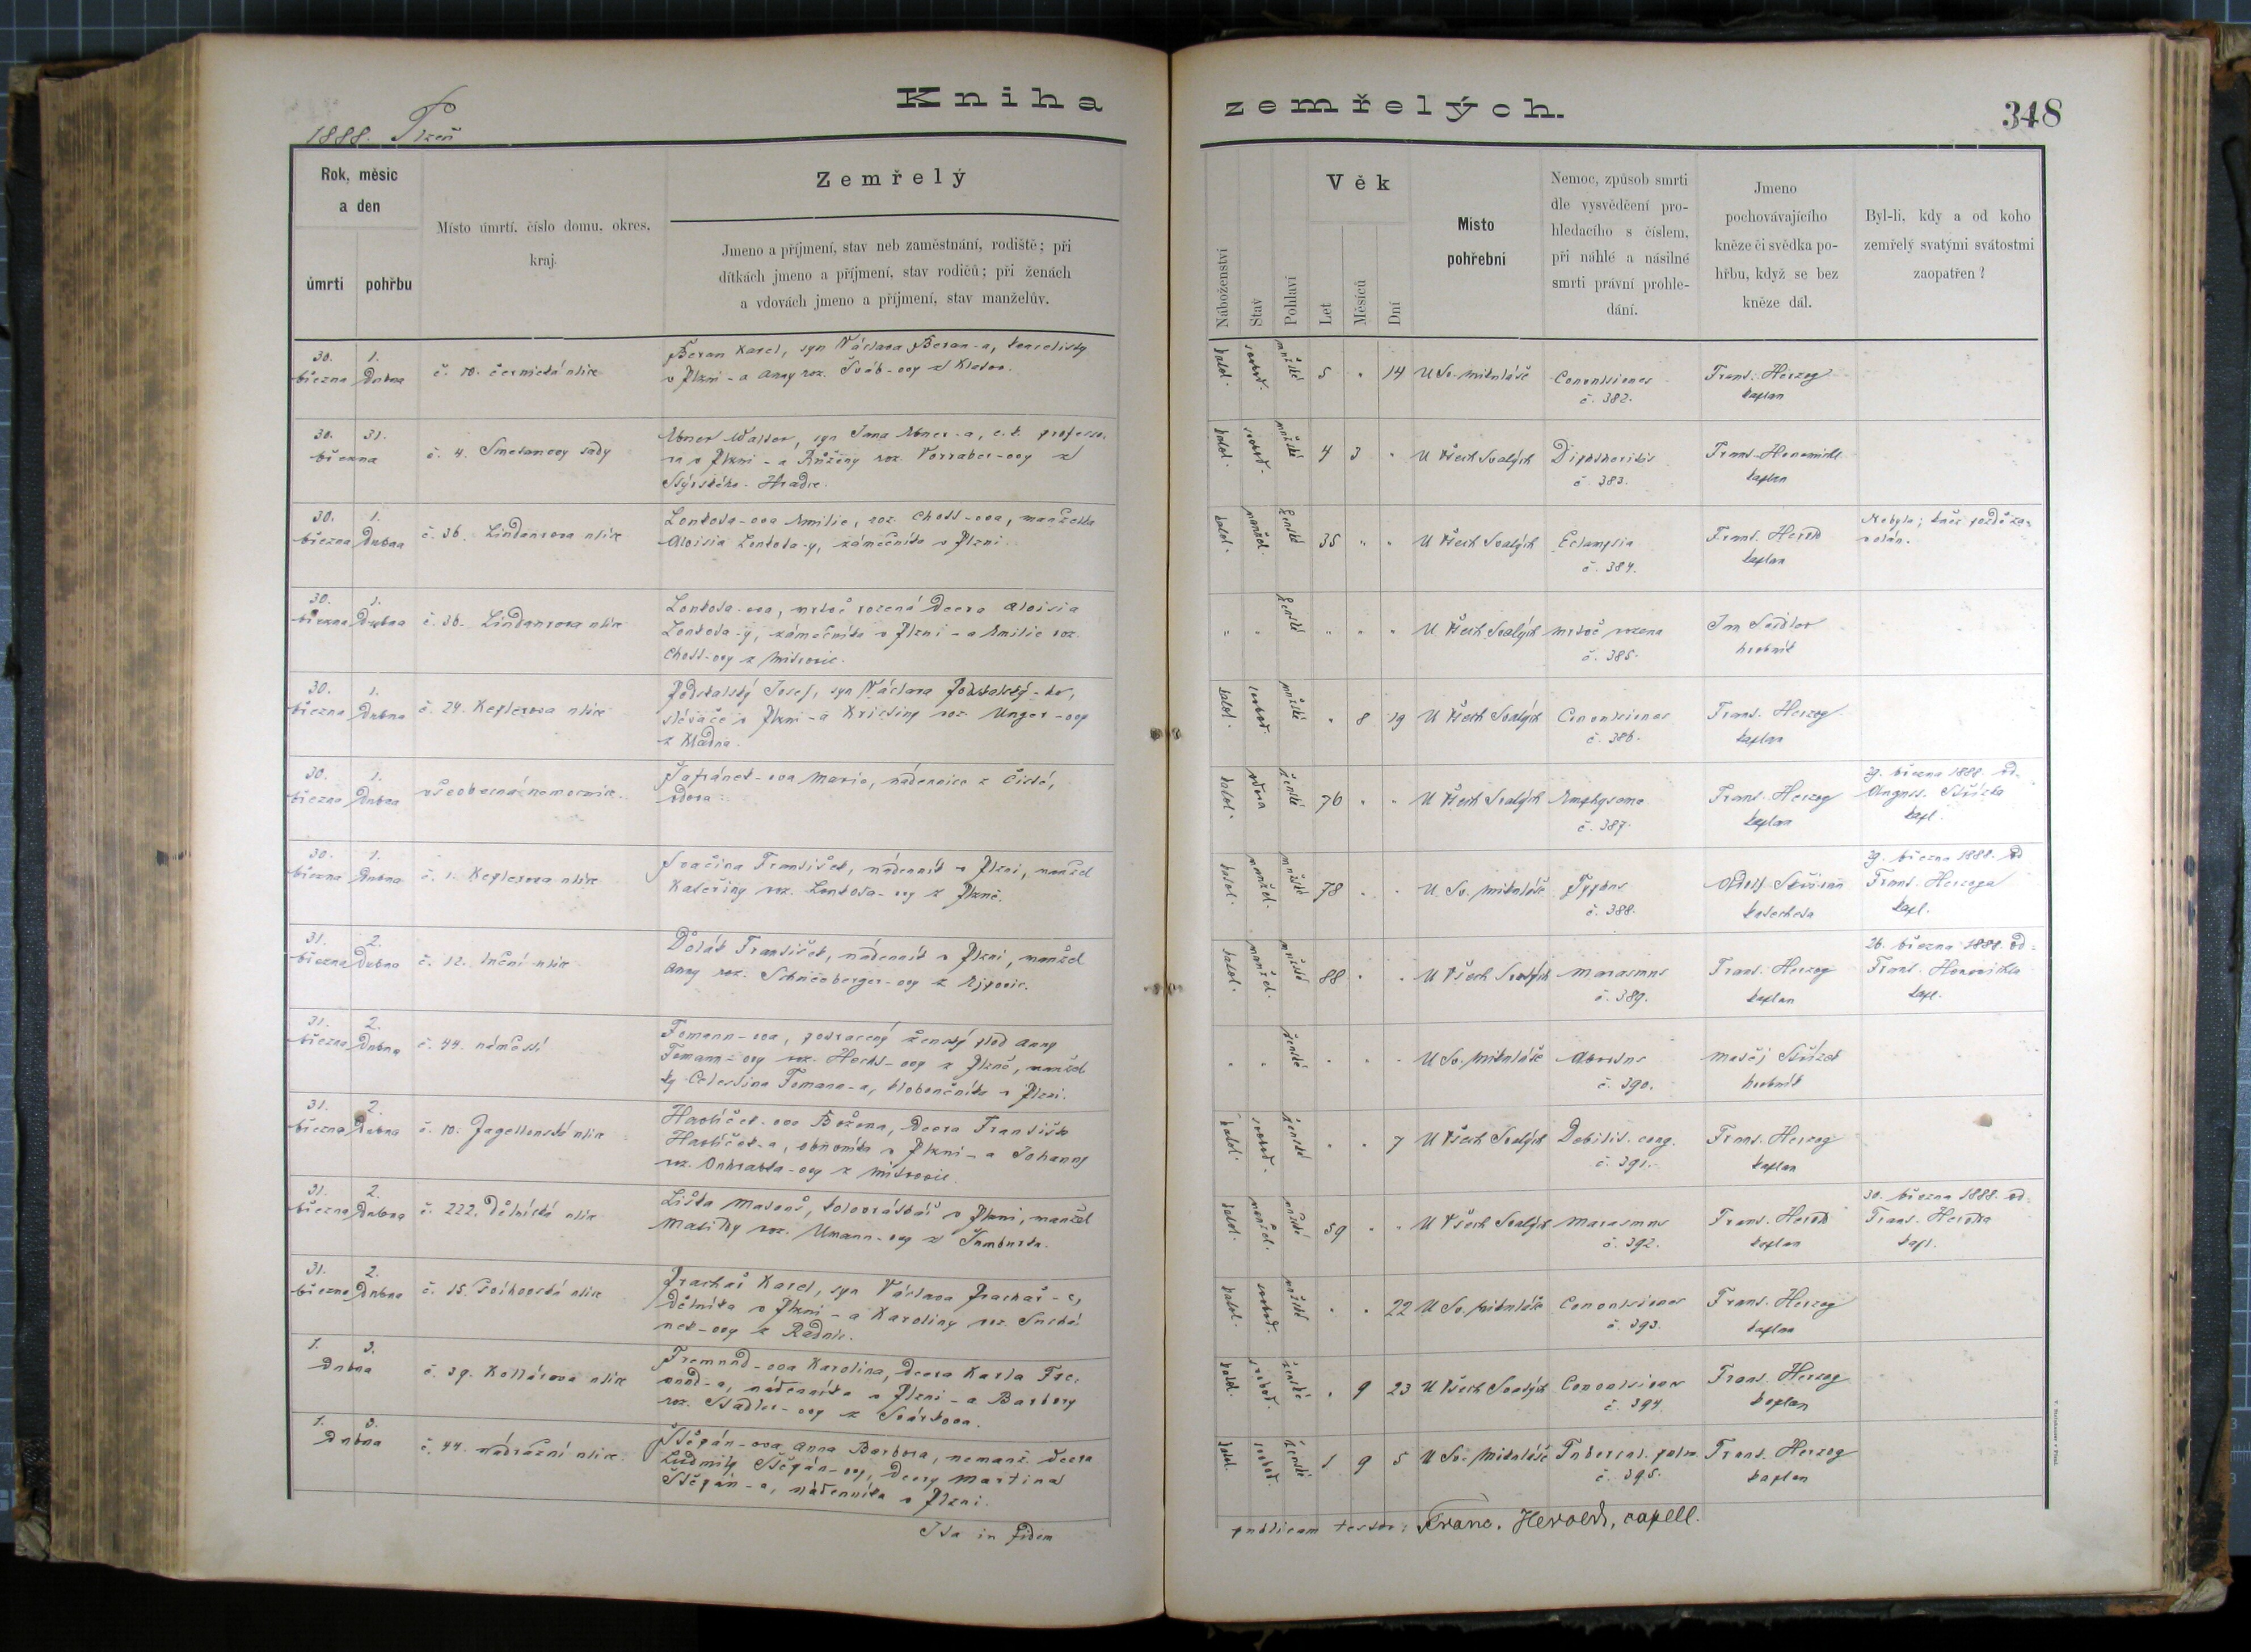 Kniha zemřelých.
348
1888. Plzeň
Rok, měsíc
a den
úmrtí
pohřbu
Místo úmrtí, číslo domu, okres,
kraj.
Zemřelý
Jmeno a příjmení, stav neb zaměstnání, rodiště; při
dítkách jmeno a příjmení, stav rodičů; při ženách
a vdovách jmeno a příjmení, stav manželův.
Náboženství
Stav
Pohlaví
Věk
Let
Měsíců
Dní
Místo
pohřební
Nemoc, způsob smrti
dle vysvědčení pro-
hledacího s číslem,
při náhlé a násilné
smrti právní prohle-
dání.
Jmeno
pochovávajícího
kněze či svědka po-
hřbu, když se bez
kněze dál.
Byl-li, kdy a od koho
zemřelý svatými svátostmi
zaopatřen?
30. března
1. Dubna
č. 10. černická ulice
Beran Karel, syn Václava Beran-a,
v Plzni - a Anny roz. Šváb-ovy z Klatov.
katol. svobod. mužské 5 " 14
U Sv. Mikuláše
Convulsiones
č. 382.
Franc. Herzog
kaplan
30. 31.
března
č. 4. Smetanovy sady
Ebner Walter, syn Jana Ebner-a, c.k. professo-
ra v Plzni - a Růženy roz. Vorraber-ovy z
Štýrského-Hradce.
katol. svobod. mužské 4 3 "
U Všech Svatých
Diphtheritis
č. 383.
Franc.
kaplan
30. března
1. Dubna
č. 36. Lindaurova ulice
Loukota-ova Emilie, roz. Chott-ova, manželka
Aloisia Loukota-y, zámečníka v Plzni.
katol. manžel. ženské 35 " "
U Všech Svatých
Eclampsia
č. 384.
Franc. Herold
kaplan
Nebyla; kněz pozdě za-
volán.
30. března
1. Dubna
č. 36. Lindaurova ulice
Loukota-ova, mrtvě rozená dcera Aloisia
Loukota-y, zámečníka v Plzni - a Emilie roz.
Chott-ovy z Mitrovic.
" " ženské " " "
U Všech Svatých
mrtvě rozena
č. 385.
Jan Saidler
hrobník
30. března
1. Dubna
č. 24. Keplerova ulice
Podskalský Josef, syn Václava Podskalský-ho,
slévače v Plzni - a Kristiny roz. Unger-ovy
z Kladna.
katol. svobod. mužské " 8 19
U Všech Svatých
Convulsiones
č. 386.
Franc. Herzog
kaplan
30. března
1. Dubna
všeobecná nemocnice
Šafránek-ova Marie, nádennice z Čisté,
vdova.
katol. vdova ženské 76 " "
U Všech Svatých
Emphysema
č. 387.
Franc. Herzog
kaplan
29. března 1888. od
August.
kapl.
30. března
1. Dubna
č. 1. Keplerova ulice
Svačina František, nádenník v Plzni, manžel
Kateřiny roz. Loukota-ovy z Plzně.
katol. manžel. mužské 78 " "
U Sv. Mikuláše
Typhus
č. 388.
Adolf
katecheta
29. března 1888. od
Franc. Herzoga
kapl.
31. března
2. Dubna
č. 12. luční ulice
Dolák František, nádenník v Plzni, manžel
Anny roz. Schneeberger-ovy z Ejpovic.
katol. manžel. mužské 88 " "
U Všech Svatých
Marasmus
č. 389.
Franc. Herzog
kaplan
26. března 1888. od
Franc.
kapl.
31. března
2. Dubna
č. 44. náměstí
Tomann-ova, potracený ženský plod Anny
Tomann-ovy roz. Hecht-ovy z Plzně, manžel-
ky Celestina Tomann-a, kloboučníka v Plzni.
" " ženské " " "
U Sv. Mikuláše
Abortus
č. 390.
Matěj
hrobník
31. března
2. Dubna
č. 10. Jagellonská ulice
Havlíček-ova Božena, dcera Františka
Havlíček-a, obuvníka v Plzni - a Johanny
roz. Ouhrabka-ovy z Mitrovic.
katol. svobod. ženské " " 7
U Všech Svatých
Debilit. cong.
č. 391.
Franc. Herzog
kaplan
31. března
2. Dubna
č. 222. Dělnická ulice
Liška Matouš, kolovrátkář v Plzni, manžel
Matildy roz. Umann-ovy z Šumburka.
katol. manžel. mužské 59 " "
U Všech Svatých
Marasmus
č. 392.
Franc. Herold
kaplan
30. března 1888. od
Franc. Herolda
kapl.
31. března
2. Dubna
č. 15. Švihovská ulice
Prachař Karel, syn Václava Prachař-e,
dělníka v Plzni - a Karoliny roz. Suchá-
nek-ovy z Radnic.
katol. svobod. mužské " " 22
U Sv. Mikuláše
Convulsiones
č. 393.
Franc. Herzog
kaplan
1. 3.
Dubna
č. 39. Kollárova ulice
Fremund-ova Karolina, dcera Karla Fre-
mund-a, nádenníka v Plzni - a Barbory
roz. Stadler-ovy z Svárkova.
katol. svobod. ženské " 9 23
U Všech Svatých
Convulsiones
č. 394.
Franc. Herzog
kaplan
1. 3.
Dubna
č. 44. nádražní ulice
Štěpán-ova Anna Barbora, nemanž. dcera
Ludmily Štěpán-ovy, dcery Martina
Štěpán-a, nádenníka v Plzni.
katol. svobod. ženské 1 9 5
U Sv. Mikuláše
Tubercul. pulm.
č. 395.
Franc. Herzog
kaplan
Ita in fidem publicam testor: Franc. Herold, capell.